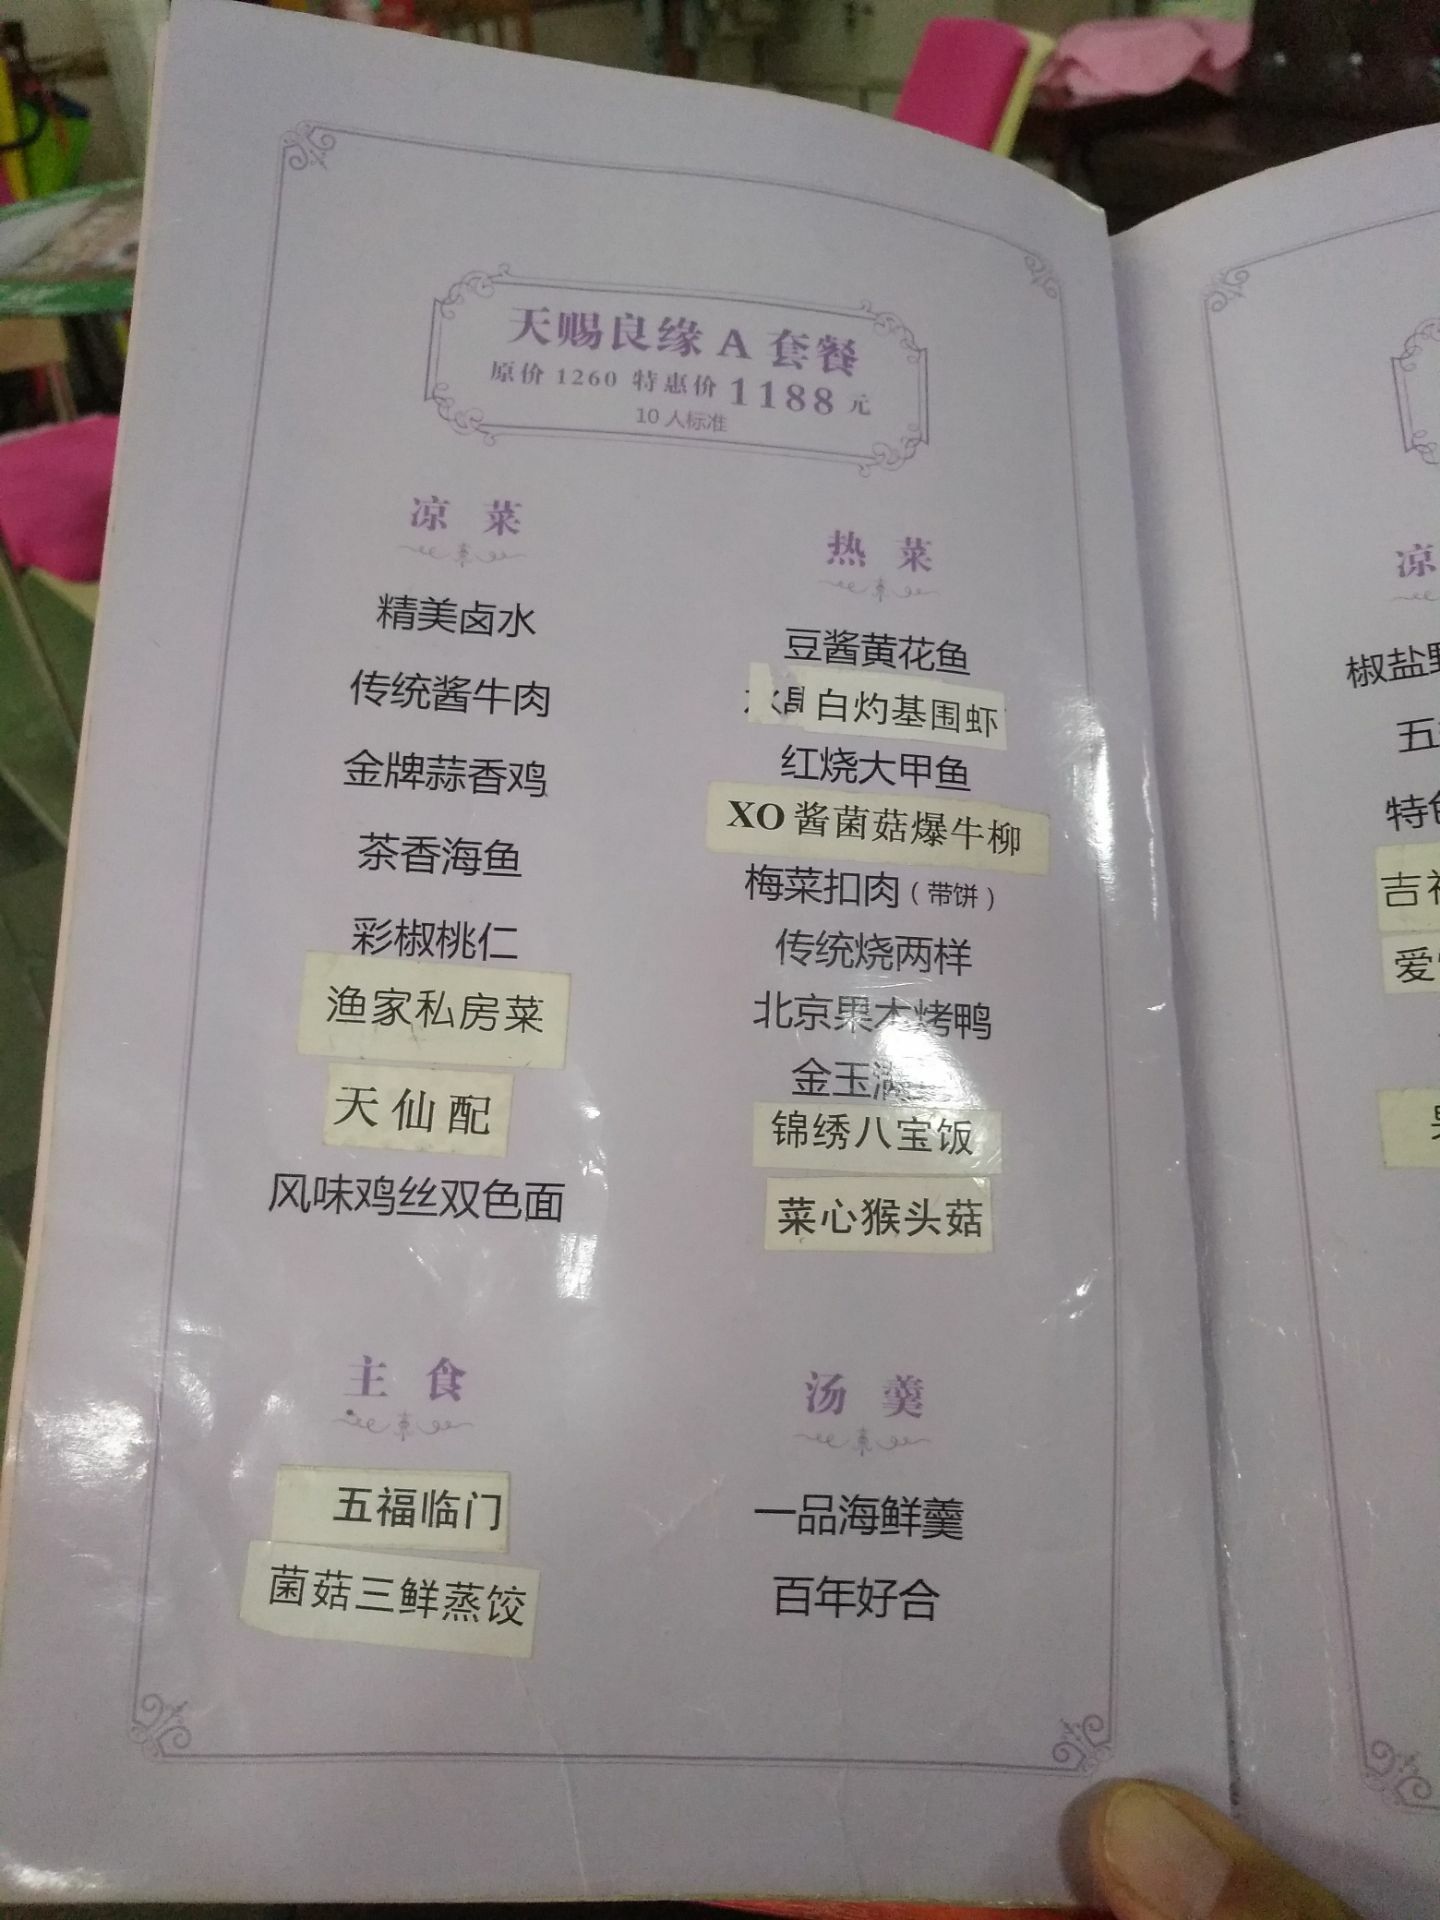 天赐良缘 A 套餐
原价 1260 特惠价 1188 元
10 人标准
凉 菜
精美卤水
传统酱牛肉
金牌蒜香鸡
茶香海鱼
彩椒桃仁
渔家私房菜
天仙配
风味鸡丝双色面
热 菜
豆酱黄花鱼
白灼基围虾
红烧大甲鱼
XO 酱菌菇爆牛柳
梅菜扣肉（带饼）
传统烧两样
北京果木烤鸭
金玉满
锦绣八宝饭
菜心猴头菇
主 食
五福临门
菌菇三鲜蒸饺
汤 羹
一品海鲜羹
百年好合
凉
椒盐
五
特色
吉祥
爱